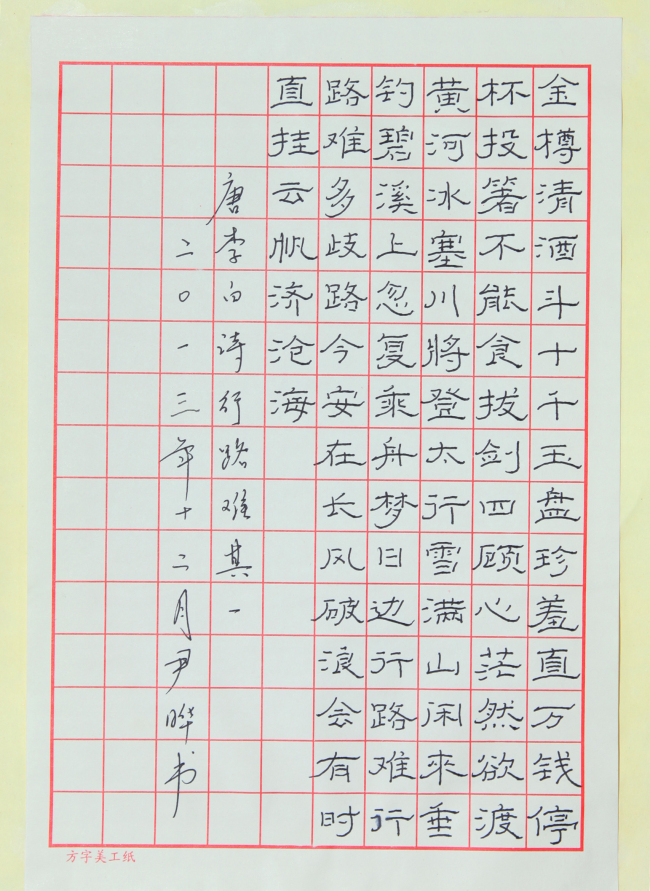 金樽清酒斗十千玉盘珍羞直万钱停
杯投箸不能食拔剑四顾心茫然欲渡
黄河冰塞川將登太行雪满山闲來垂
钓碧溪上忽复乘舟梦日边行路难行
路难多歧路今安在长风破浪会有时
直挂云帆济沧海
唐李白诗行路难其一
二〇一三年十二月尹晔书
方字美工纸